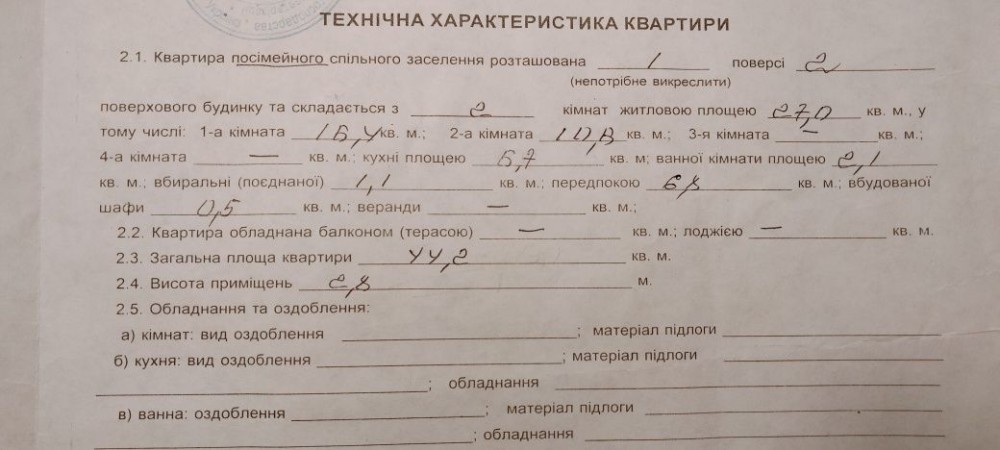 ТЕХНІЧНА ХАРАКТЕРИСТИКА КВАРТИРИ
2.1. Квартира посімейного спільного заселення розташована 1 поверсі 2
(непотрібне викреслити)
поверхового будинку та складається з 2 кімнат житловою площею 27,0 кв. м., у
тому числі: 1-а кімната 16,4 кв. м.; 2-а кімната 10,8 кв. м.; 3-я кімната — кв. м.;
4-а кімната — кв. м.; кухні площею 6,7 кв. м; ванної кімнати площею 2,1
кв. м.; вбиральні (поєднаної) 1,1 кв. м.; передпокою 6,8 кв. м.; вбудованої
шафи 0,5 кв. м.; веранди — кв. м.;
2.2. Квартира обладнана балконом (терасою) — кв. м.; лоджією — кв. м.
2.3. Загальна площа квартири 44,2 кв. м.
2.4. Висота приміщень 2,8 м.
2.5. Обладнання та оздоблення:
а) кімнат: вид оздоблення ; матеріал підлоги
б) кухня: вид оздоблення ; матеріал підлоги
; обладнання
в) ванна: оздоблення ; матеріал підлоги
; обладнання